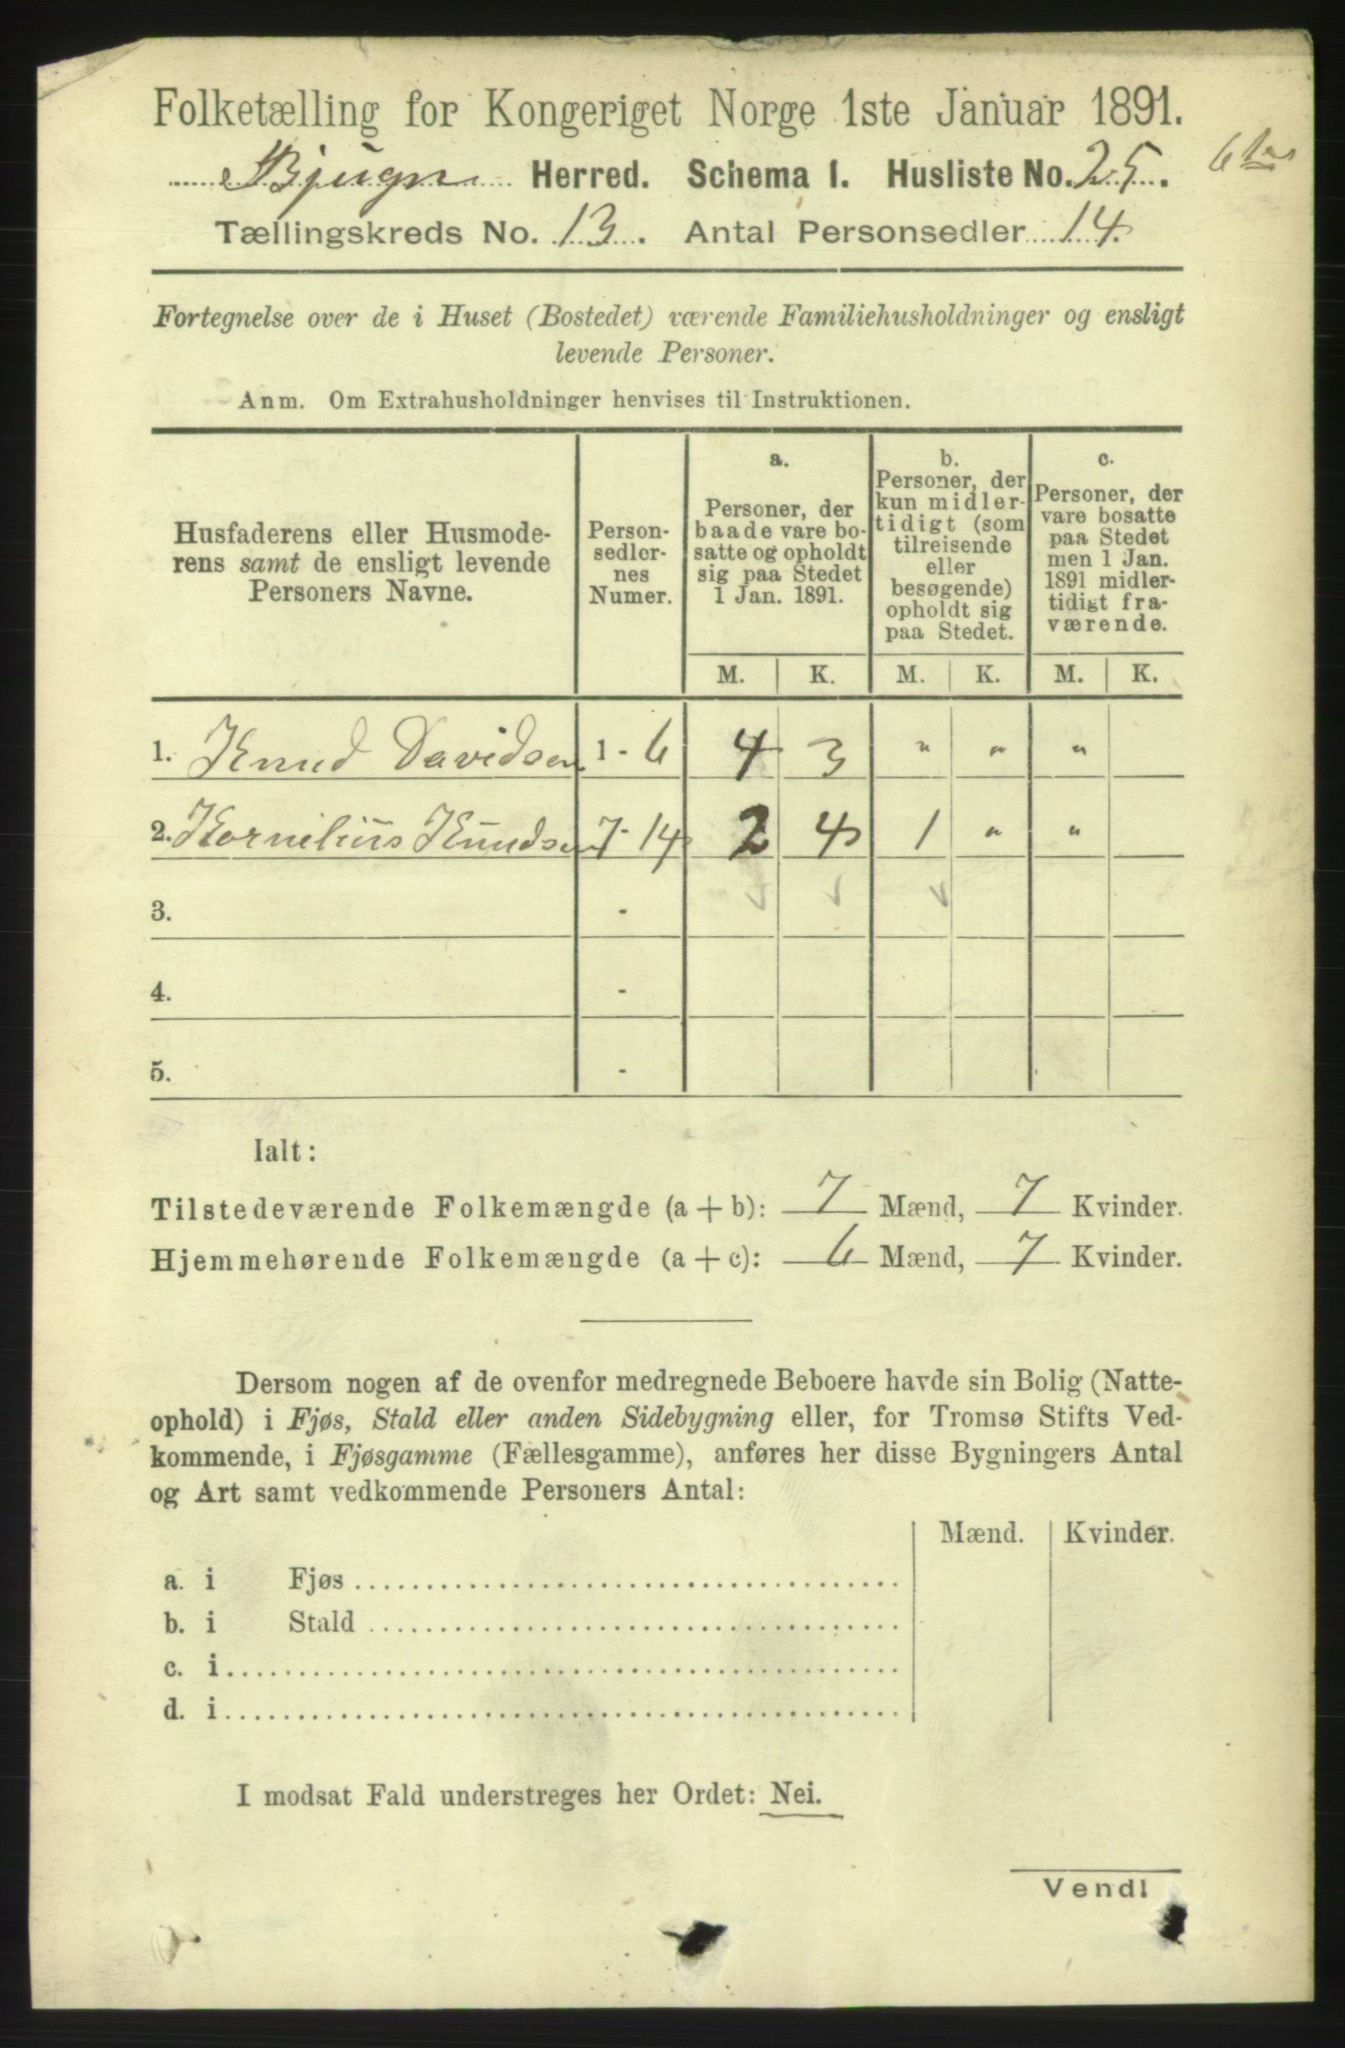 Folketælling for Kongeriget Norge 1ste Januar 1891.
Bjugn Herred. Schema I. Husliste No. 25.
Tællingskreds No. 13. Antal Personsedler 14.
Fortegnelse over de i Huset (Bostedet) værende Familiehusholdninger og ensligt
levende Personer.
Anm. Om Extrahusholdninger henvises til Instruktionen.
Husfaderens eller Husmode-
rens samt de ensligt levende
Personers Navne.
Person-
sedler-
nes
Numer.
a.
Personer, der
baade vare bo-
satte og opholdt
sig paa Stedet
1 Jan. 1891.
b.
Personer, der
kun midler-
tidigt (som
tilreisende
eller
besøgende)
opholdt sig
paa Stedet.
c.
Personer, der
vare bosatte
paa Stedet
men 1 Jan.
1891 midler-
tidigt fra-
værende.
M. K. M. K. M. K.
1. Knud Davidsen 1 - 6 4 3 " " "
2. Kornelius Knudsen 7 - 14 2 4 1 " "
3. -
4. -
5. -
Ialt:
Tilstedeværende Folkemængde (a + b): 7 Mænd, 7 Kvinder.
Hjemmehørende Folkemængde (a + c): 6 Mænd, 7 Kvinder.
Dersom nogen af de ovenfor medregnede Beboere havde sin Bolig (Natte-
ophold) i Fjøs, Stald eller anden Sidebygning eller, for Tromsø Stifts Ved-
kommende, i Fjøsgamme (Fællesgamme), anføres her disse Bygningers Antal
og Art samt vedkommende Personers Antal:
Mænd. Kvinder.
a. i Fjøs
b. i Stald
c. i
d. i
I modsat Fald understreges her Ordet: Nei.
Vend!